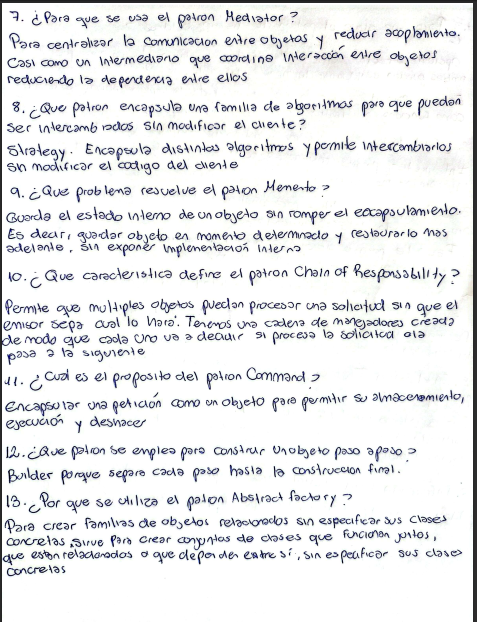 7. ¿Para que se usa el patron Mediator?
Para centralizar la comunicacion entre objetos y reducir acoplamiento.
Casi como un intermediario que coordina interacción entre objetos
reduciendo la dependencia entre ellos
8. ¿Que patron encapsula una familia de algoritmos para que puedan
ser intercambiados sin modificar el cliente?
Strategy. Encapsula distintos algoritmos y permite intercambiarlos
sin modificar el codigo del cliente
9. ¿Que problema resuelve el patron Memento?
Guarda el estado interno de un objeto sin romper el encapsulamiento.
Es decir, guardar objeto en momento determinado y restaurarlo mas
adelante, sin exponer implementacion interna
10. ¿Que caracteristica define el patron Chain of Responsability?
Permite que multiples objetos puedan procesar una solicitud sin que el
emisor sepa cual lo hara. Tenemos una cadena de manejadores creada
de modo que cada uno va a decidir si procesa la solicitud o la
pasa a la siguiente
11. ¿Cual es el proposito del patron Command?
Encapsular una petición como un objeto para permitir su almacenamiento,
ejecución y deshacer
12. ¿Que patron se emplea para construir un objeto paso a paso?
Builder porque separa cada paso hasta la construccion final.
13. ¿Por que se utiliza el patron Abstract factory?
Para crear familias de objetos relacionados sin especificar sus clases
concretas, sirve para crear conjuntos de clases que funcionan juntos,
que estan relacionados o que dependen entre sí, sin especificar sus clases
concretas